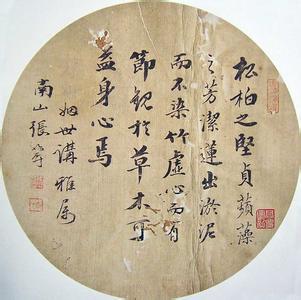 松柏之堅貞蘋藻
之芳潔蓮出淤泥
而不染竹虛心而有
節觀於草木可
益身心焉
姻世講雅屬
南山張